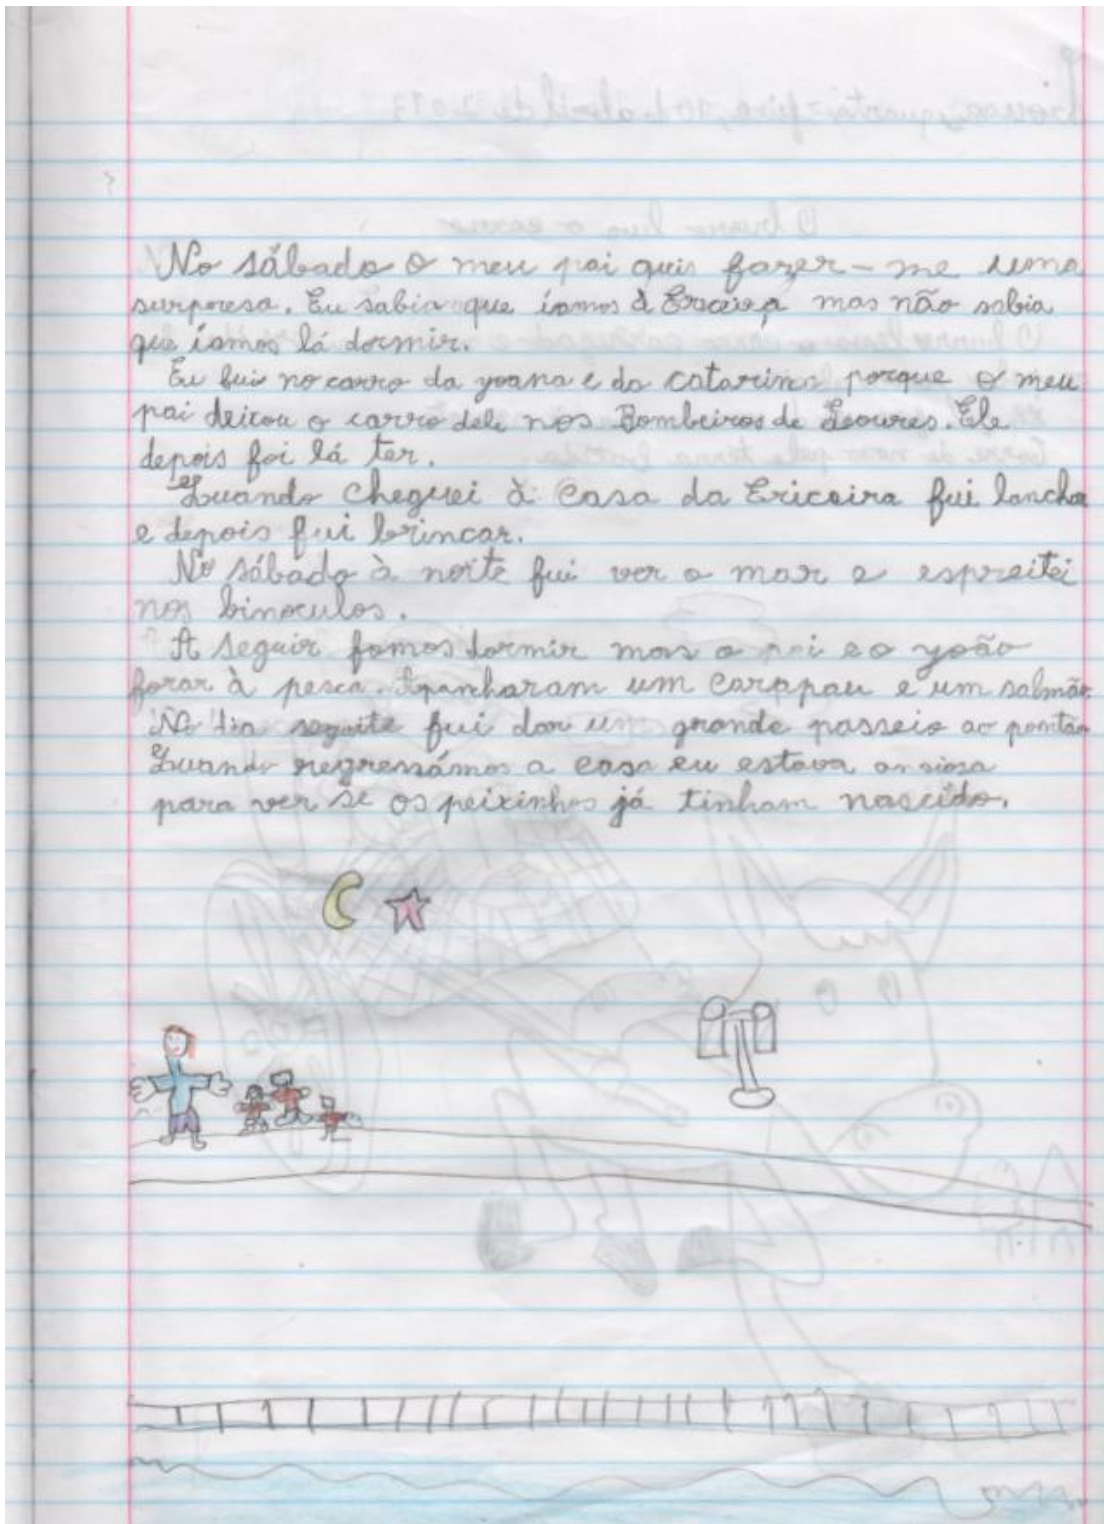 No sábado o meu pai quis fazer-me uma
surporesa. Eu sabia que íamos à Ericeira mas não sabia
que íamos lá dormir.
Eu fui no carro da yoana e da catarina porque o meu
pai deixou o carro dele nos Bombeiros de Loures. Ele
depois foi lá ter.
Quando cheguei à casa da Ericeira fui lancha
e depois fui brincar.
No sábado à noite fui ver o mar e espreitei
nos binoculos.
A seguir fomos dormir mas o pai e o yoão
foram à pesca. Apanharam um carapau e um salmão.
No dia seguite fui dar um grande passeio ao pontão
Quando regressámos a casa eu estava ansiosa
para ver se os peixinhos já tinham nascido.